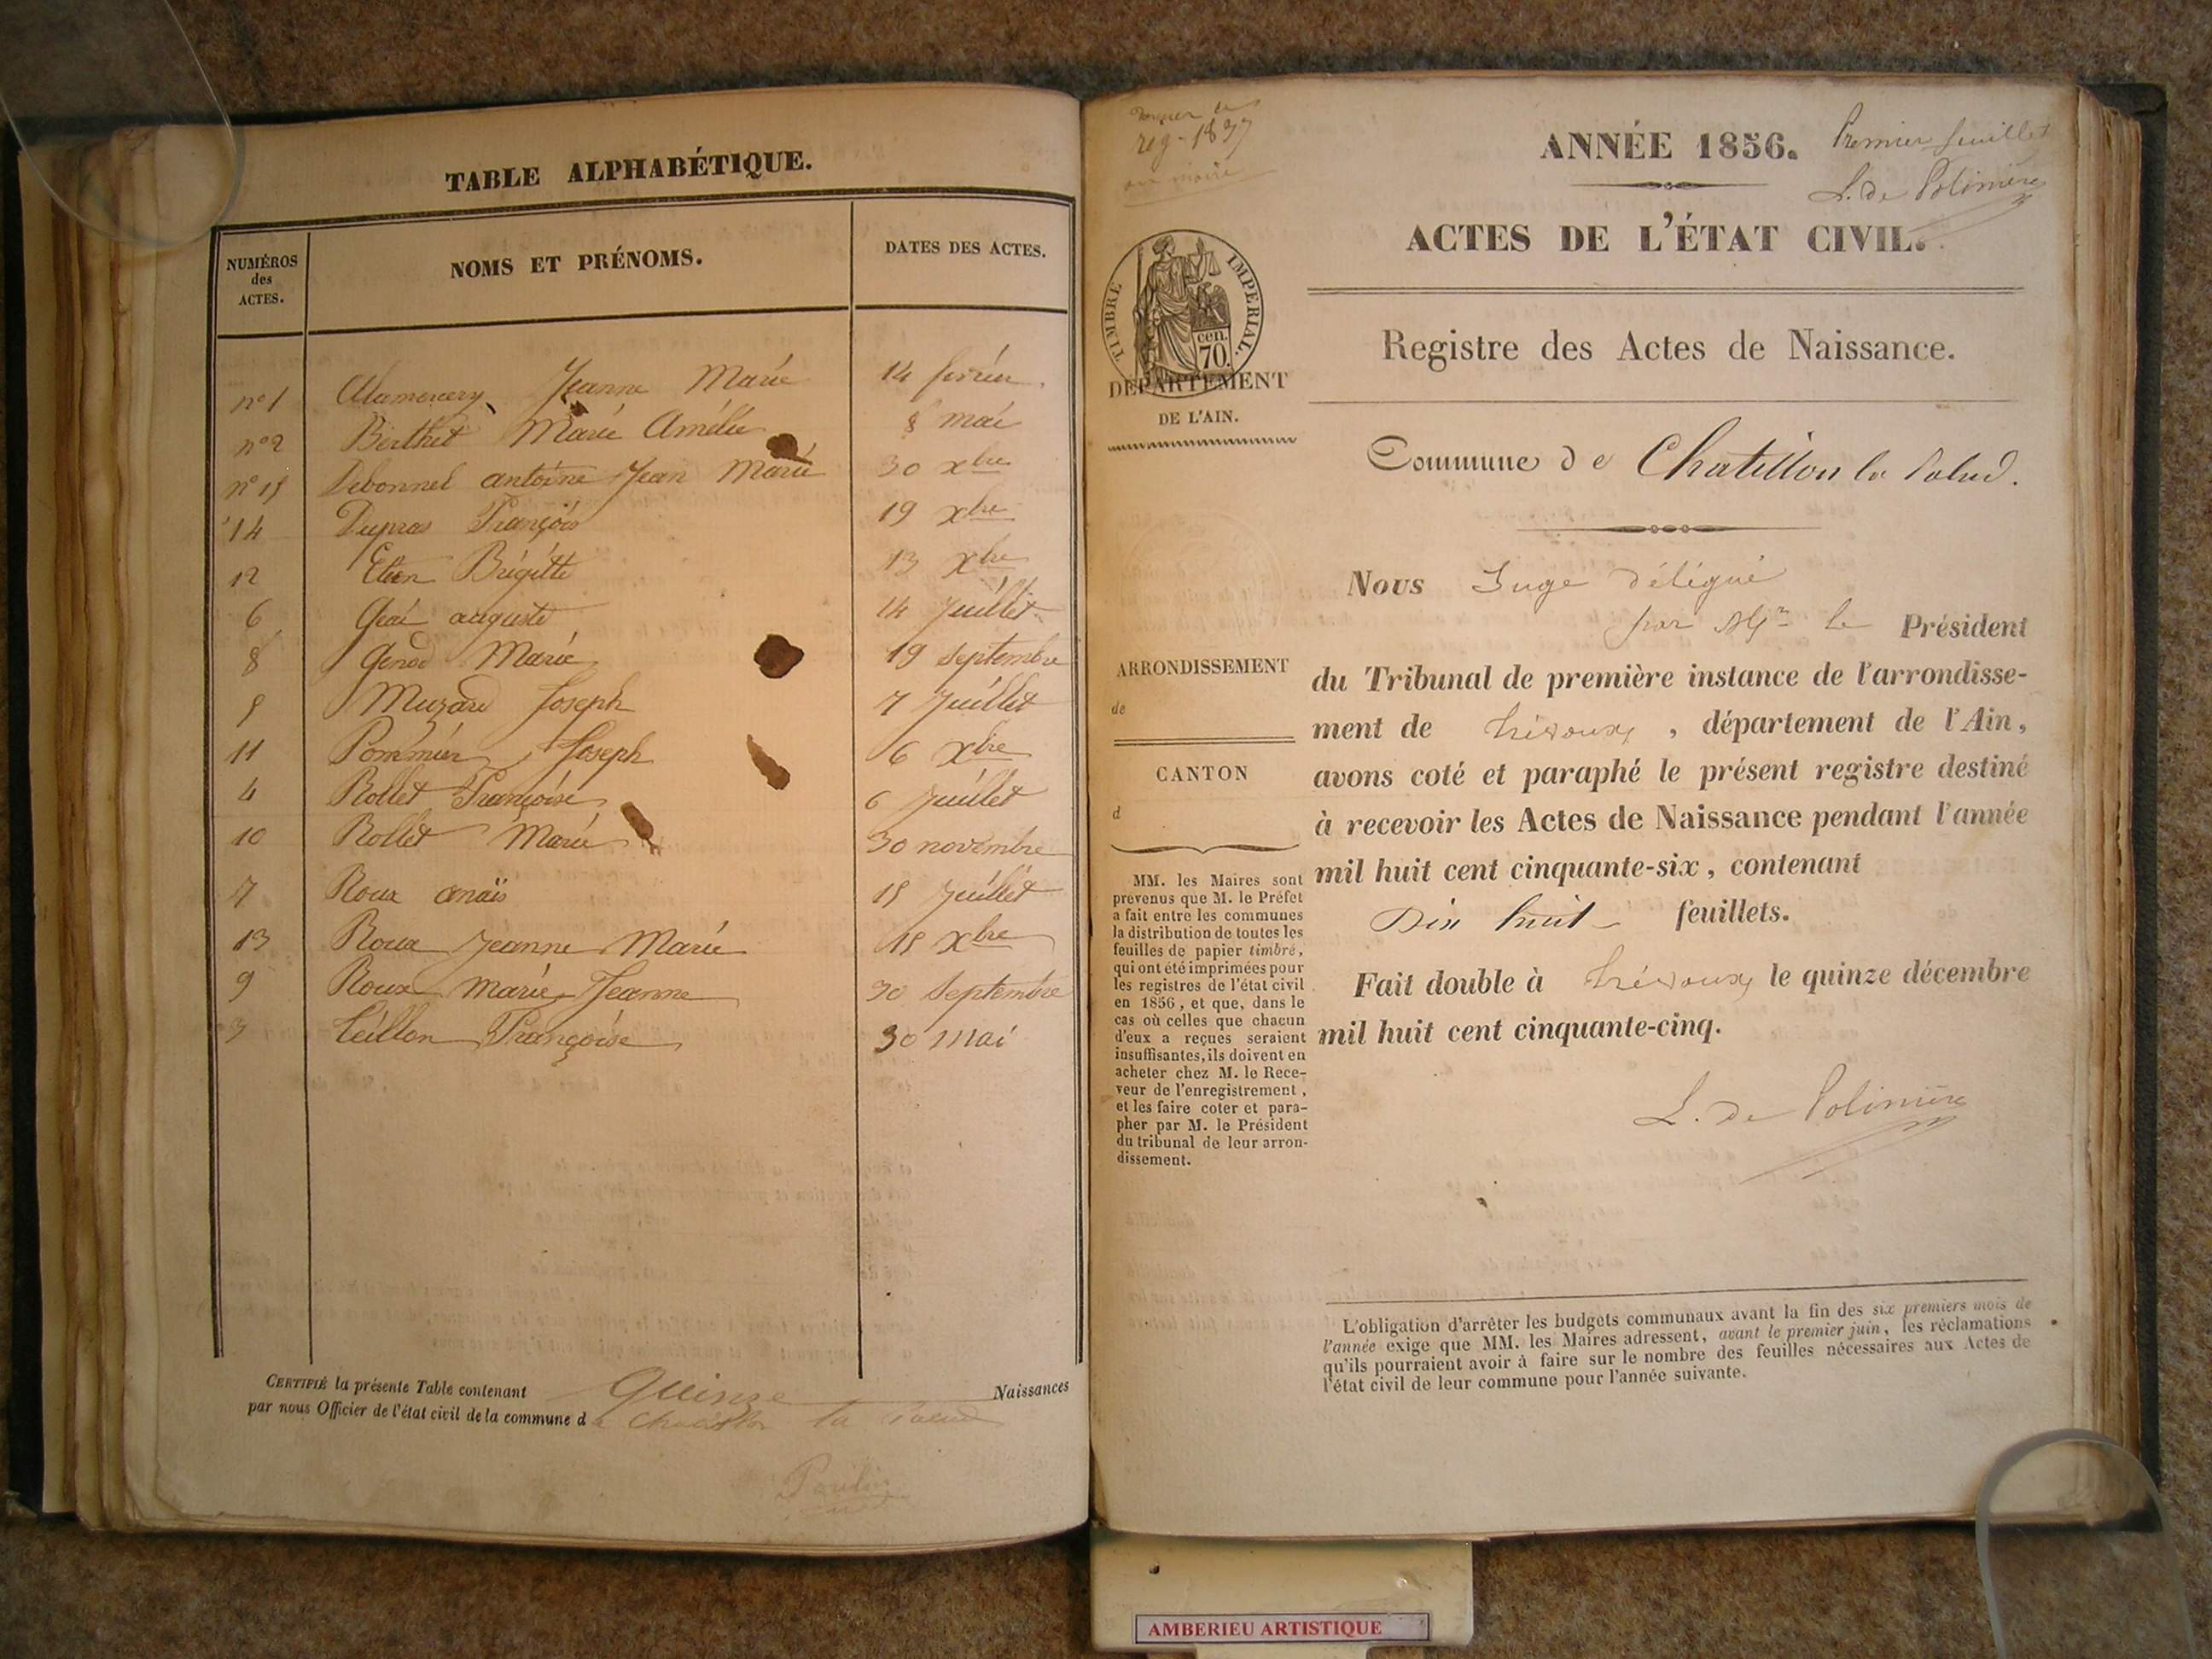 TABLE ALPHABÉTIQUE.
NUMÉROS des ACTES.
NOMS ET PRÉNOMS.
DATES DES ACTES.
n° 1 Alamercery Jeanne Marie 14 février
n° 2 Berthet Marie Amélie 8 mai
n° 15 Debonnel antoine Jean Marie 30 xbre
14 Dupras François 19 xbre
12 Brigitte 13 xbre
6 auguste 14 Juillet
8 Genod Marie 19 septembre
5 Muzard Joseph 7 Juillet
11 Pommier Joseph 6 xbre
4 Rollet Françoise 6 Juillet
10 Rollet Marie 30 novembre
7 Roux anaïs 15 Juillet
13 Roux Jeanne Marie 15 xbre
9 Roux Marie Jeanne 30 Septembre
3 Teillon Françoise 30 mai
CERTIFIÉ la présente Table contenant Quinze Naissances
par nous Officier de l'état civil de la commune de Chatillon la Palud
reg - 1837
ANNÉE 1856.
Premier feuillet
L. de Polinière
ACTES DE L'ÉTAT CIVIL.
TIMBRE IMPERIAL.
cen. 70.
DÉPARTEMENT
DE L'AIN.
Registre des Actes de Naissance.
Commune de Chatillon la Palud.
Nous Juge délégué
par Mr le Président
ARRONDISSEMENT
de
CANTON
d
du Tribunal de première instance de l'arrondisse-
ment de Trévoux, département de l'Ain,
avons coté et paraphé le présent registre destiné
à recevoir les Actes de Naissance pendant l'année
mil huit cent cinquante-six, contenant
Dix huit feuillets.
Fait double à Trévoux, le quinze décembre
mil huit cent cinquante-cinq.
L. de Polinière
MM. les Maires sont
prévenus que M. le Préfet
a fait entre les communes
la distribution de toutes les
feuilles de papier timbré,
qui ont été imprimées pour
les registres de l'état civil
en 1856, et que, dans le
cas où celles que chacun
d'eux a reçues seraient
insuffisantes, ils doivent en
acheter chez M. le Rece-
veur de l'enregistrement,
et les faire coter et para-
pher par M. le Président
du tribunal de leur arron-
dissement.
L'obligation d'arrêter les budgets communaux avant la fin des six premiers mois de
l'année exige que MM. les Maires adressent, avant le premier juin, les réclamations
qu'ils pourraient avoir à faire sur le nombre des feuilles nécessaires aux Actes de
l'état civil de leur commune pour l'année suivante.
AMBERIEU ARTISTIQUE